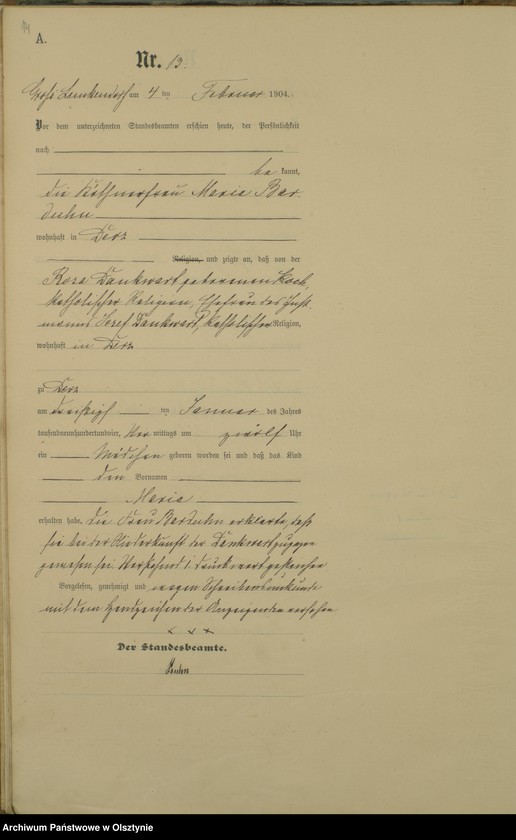 14
A.
Nr. 13
Groß Lemkendorf am 4 ten Februar 1904.
Vor dem unterzeichneten Standesbeamten erschien heute, der Persönlichkeit
nach
be kannt,
die Käthnerfrau Maria Bar
duhn
wohnhaft in Derz
Religion, und zeigte an, daß von der
Rosa Dankwart geborenen Koch,
katholischer Religion, Ehefrau des Inst
manns Josef Dankwart, katholischer Religion,
wohnhaft in Derz
zu Derz
am dreißigsten Januar des Jahres
tausendneunhundertundvier, Vormittags um zwölf Uhr
ein Mädchen geboren worden sei und daß das Kind
den Vornamen
Maria
erhalten habe. Die Frau Barduhn erklärte, daß
sie bei der Niederkunft der Dankwart zugegen
gewesen sei. Vorstehend 1 Druckwort gestrichen
Vorgelesen, genehmigt und wegen Schreibensunkunde
mit dem Handzeichen der Anzeigenden versehen
x x x
Der Standesbeamte.
Archiwum Państwowe w Olsztynie